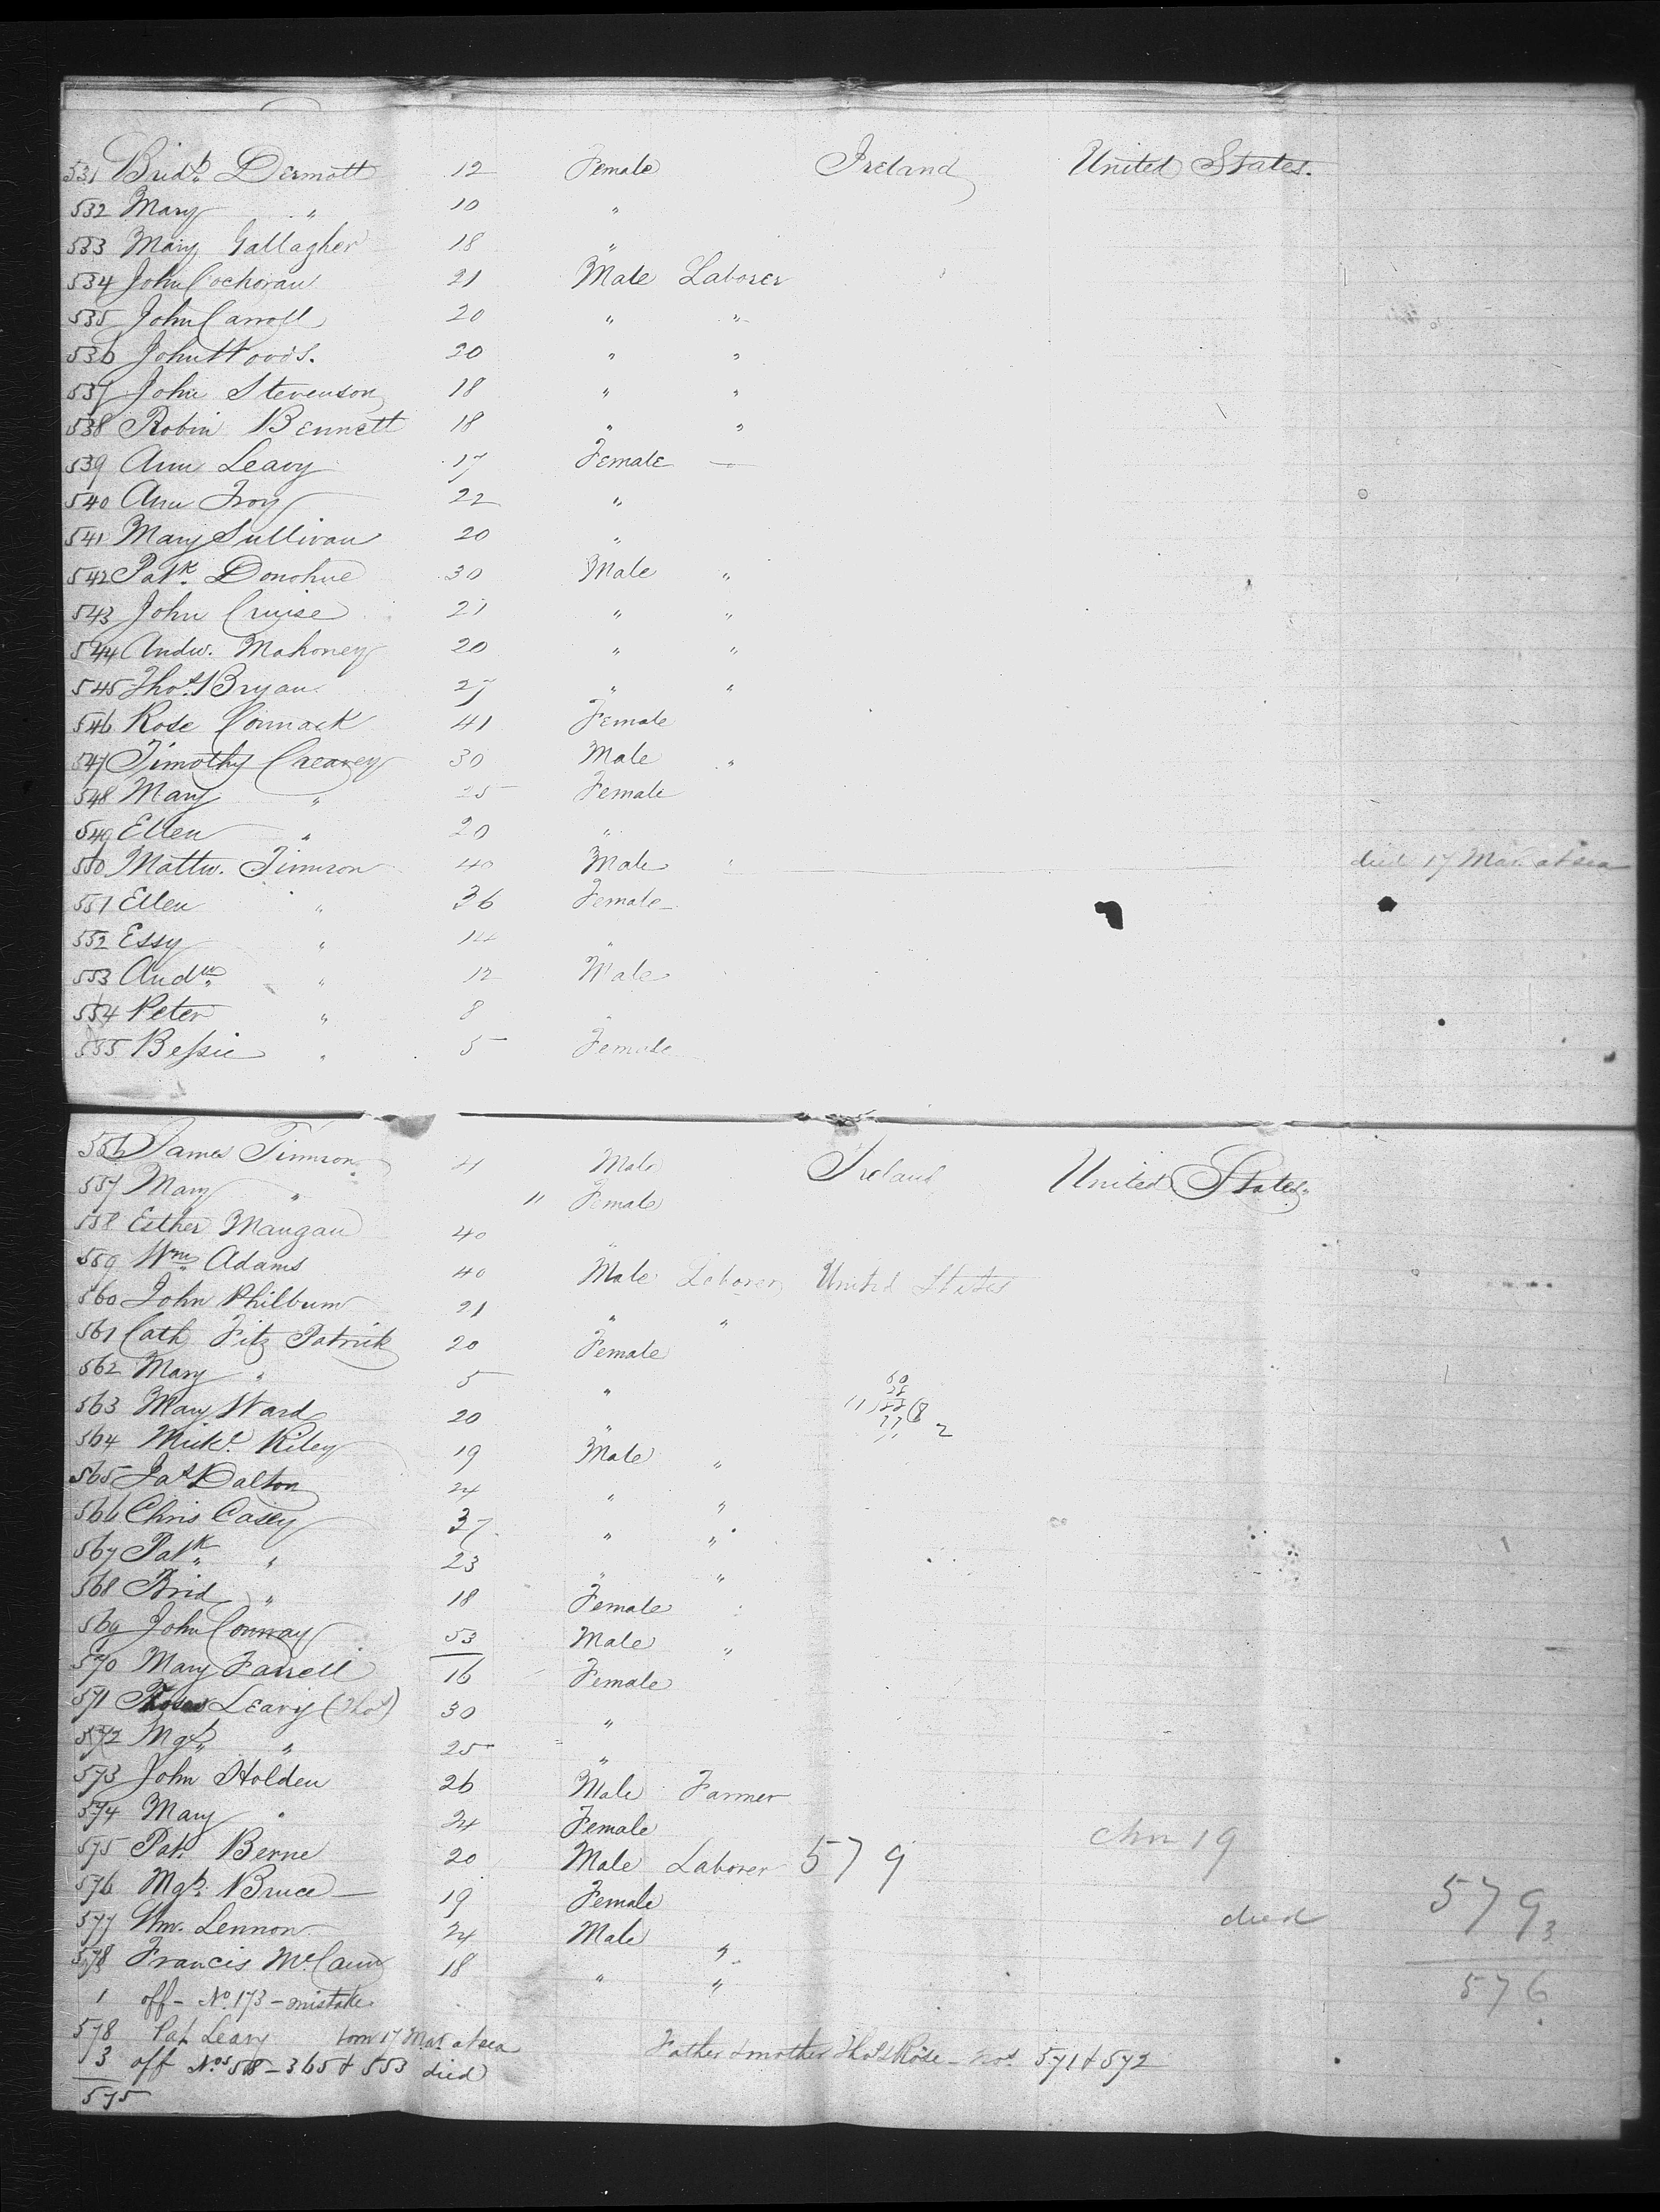 531 Bridt. Dermott 12 Female Ireland United States.
532 Mary " 10 "
533 Mary Gallagher 18 "
534 John Cochoran 21 Male Laborer
535 John Carroll 20 " "
536 John Woods. 20 " "
537 John Stevenson 18 " "
538 Robin Bennett 18 " "
539 Ann Leavy 17 Female —
540 Ann Troy 22 "
541 Mary Sullivan 20 "
542 Patk. Donohue 30 Male "
543 John Cruise 21 " "
544 Andw. Mahoney 20 " "
545 Thos. Bryan 27 " "
546 Rose Cormack 41 Female
547 Timothy Crearey 30 Male "
548 Mary " 25 Female
549 Ellen " 20 "
550 Mattw. Timson 40 Male " died 17 Mar. at sea
551 Ellen " 36 Female
552 Essy " 14 "
553 Andw. " 12 Male
554 Peter " 8 "
555 Bessie " 5 Female
556 James Timson 4 Male Ireland United States.
557 Mary " " Female
558 Esther Mangan 40 "
559 Wm. Adams 40 Male Laborer United States
560 John Philbum 21 " "
561 Cath Fitz Patrick 20 Female
562 Mary " 5 "
563 Mary Ward 20 "
564 Mickl. Riley 19 Male "
565 Jas. Dalton 24 " "
566 Chris Casey 37 " "
567 Patk. " 23 " "
568 Brid " 18 Female
569 John Conway 53 Male "
570 Mary Farrell 16 Female
571 Leavy (Thos) 30 "
572 Mgt. " 25 "
573 John Holden 26 Male Farmer
574 Mary " 24 Female
575 Pat. Berne 20 Male Laborer 579 19
576 Mgt. Bruce — 19 Female 579
577 Wm. Lennon 24 Male " died 3
578 Francis McCann 18 " " 576
1 off - No. 173 - mistake
578 Pat Leary born 17 Mar at sea Father & mother Thos & Rose - Nos. 571 & 572
3 off Nos. 58 - 365 & 553 died
575